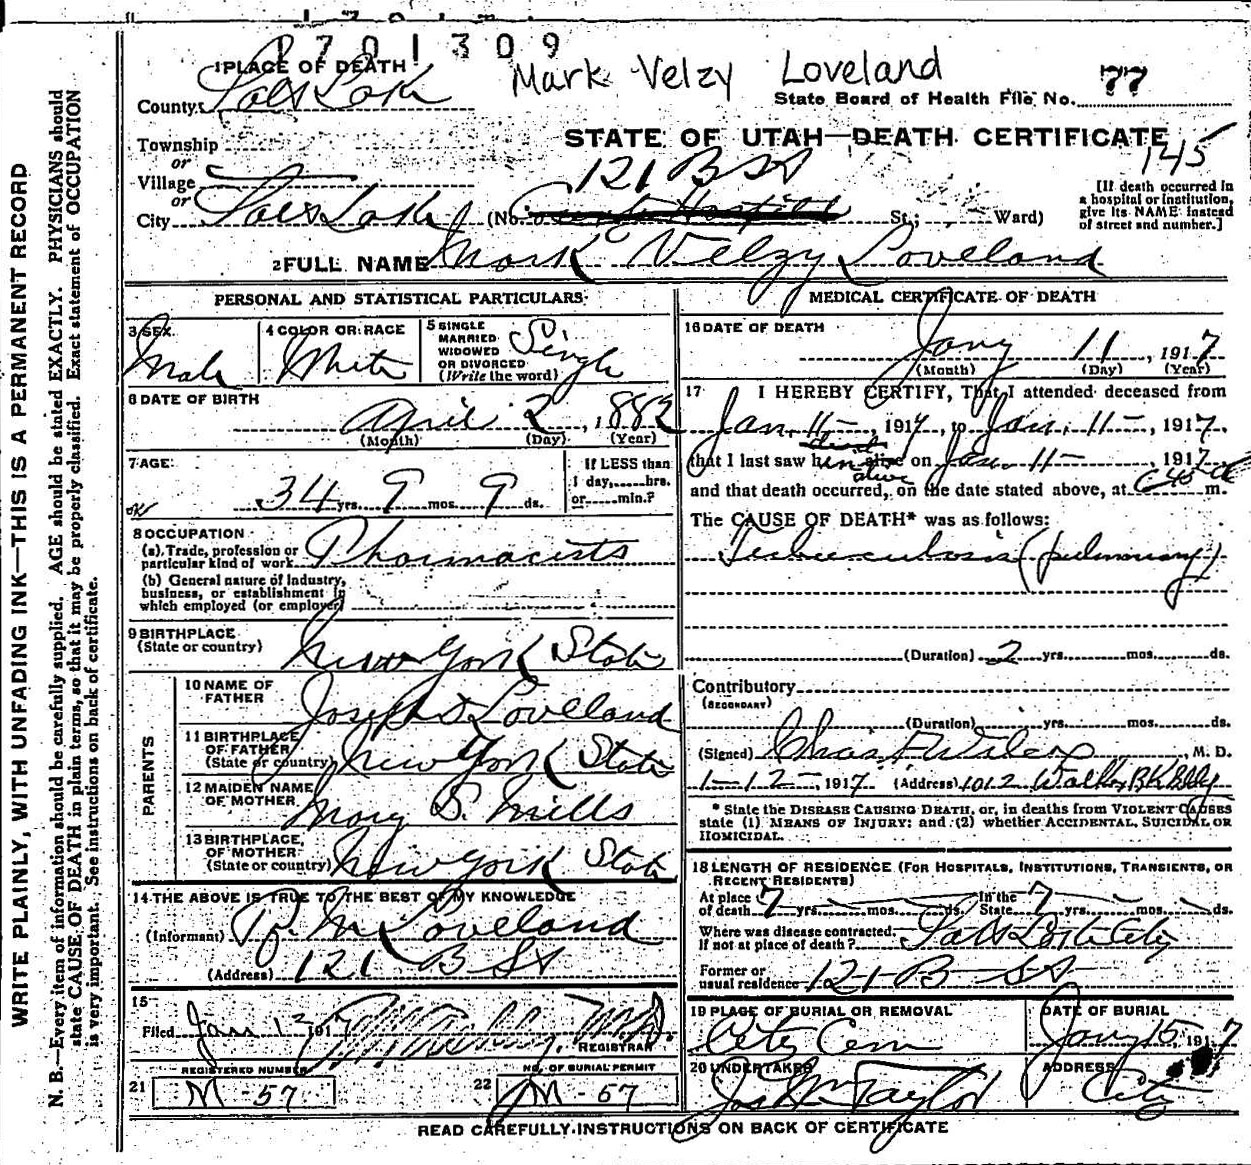 1701309
1 PLACE OF DEATH
Mark Velzy Loveland
County Salt Lake
State Board of Health File No. 77
Township
STATE OF UTAH—DEATH CERTIFICATE
145
or
Village
121 B St
or
City Salt Lake (No. St.; Ward)
[If death occurred in
a hospital or institution,
give its NAME instead
of street and number.]
2 FULL NAME Mark Velzy Loveland
PERSONAL AND STATISTICAL PARTICULARS
3 SEX
Male
4 COLOR OR RACE
White
5 SINGLE
MARRIED
WIDOWED
OR DIVORCED
(Write the word)
Single
6 DATE OF BIRTH
April 2, 1882
(Month) (Day) (Year)
7 AGE
34 yrs. 9 mos. 9 ds.
If LESS than
1 day,......hrs.
or......min.?
8 OCCUPATION
(a) Trade, profession or
particular kind of work Pharmacists
(b) General nature of industry,
business, or establishment in
which employed (or employer)
9 BIRTHPLACE
(State or country) New York State
PARENTS
10 NAME OF
FATHER Joseph S Loveland
11 BIRTHPLACE
OF FATHER
(State or country) New York State
12 MAIDEN NAME
OF MOTHER Mary S. Mills
13 BIRTHPLACE
OF MOTHER
(State or country) New York State
14 THE ABOVE IS TRUE TO THE BEST OF MY KNOWLEDGE
(Informant) M Loveland
(Address) 121 B St
15
Filed Jan 13 1917 M.D.
REGISTRAR
REGISTERED NUMBER
21 M-57
NO. OF BURIAL PERMIT
22 M-57
MEDICAL CERTIFICATE OF DEATH
16 DATE OF DEATH
Jany 11, 1917
(Month) (Day) (Year)
17 I HEREBY CERTIFY, That I attended deceased from
Jan. 11-, 1917, to Jan. 11-, 1917,
dead
that I last saw him alive on Jan. 11-, 1917,
alive
and that death occurred, on the date stated above, at m.
The CAUSE OF DEATH* was as follows:
Tuberculosis (pulmonary)
(Duration) 2 yrs. mos. ds.
Contributory
(SECONDARY)
(Duration) yrs. mos. ds.
(Signed) Chas. F. Wilcox, M. D.
1-12-, 1917 (Address) 1012 Walker Bk Bldg
* State the DISEASE CAUSING DEATH, or, in deaths from VIOLENT CAUSES
state (1) MEANS OF INJURY; and (2) whether ACCIDENTAL, SUICIDAL OR
HOMICIDAL.
18 LENGTH OF RESIDENCE (FOR HOSPITALS, INSTITUTIONS, TRANSIENTS, OR
RECENT RESIDENTS)
At place
of death 7 yrs. mos. ds.
In the
State 7 yrs. mos. ds.
Where was disease contracted,
If not at place of death? Salt Lake City
Former or
usual residence 121 B St
19 PLACE OF BURIAL OR REMOVAL
City Cem
DATE OF BURIAL
Jany 15, 1917
20 UNDERTAKER
Jos Wm Taylor
ADDRESS
City
READ CAREFULLY INSTRUCTIONS ON BACK OF CERTIFICATE
WRITE PLAINLY, WITH UNFADING INK—THIS IS A PERMANENT RECORD
N. B.—Every item of information should be carefully supplied. AGE should be stated EXACTLY. PHYSICIANS should
state CAUSE OF DEATH in plain terms, so that it may be properly classified. Exact statement of OCCUPATION
is very important. See instructions on back of certificate.